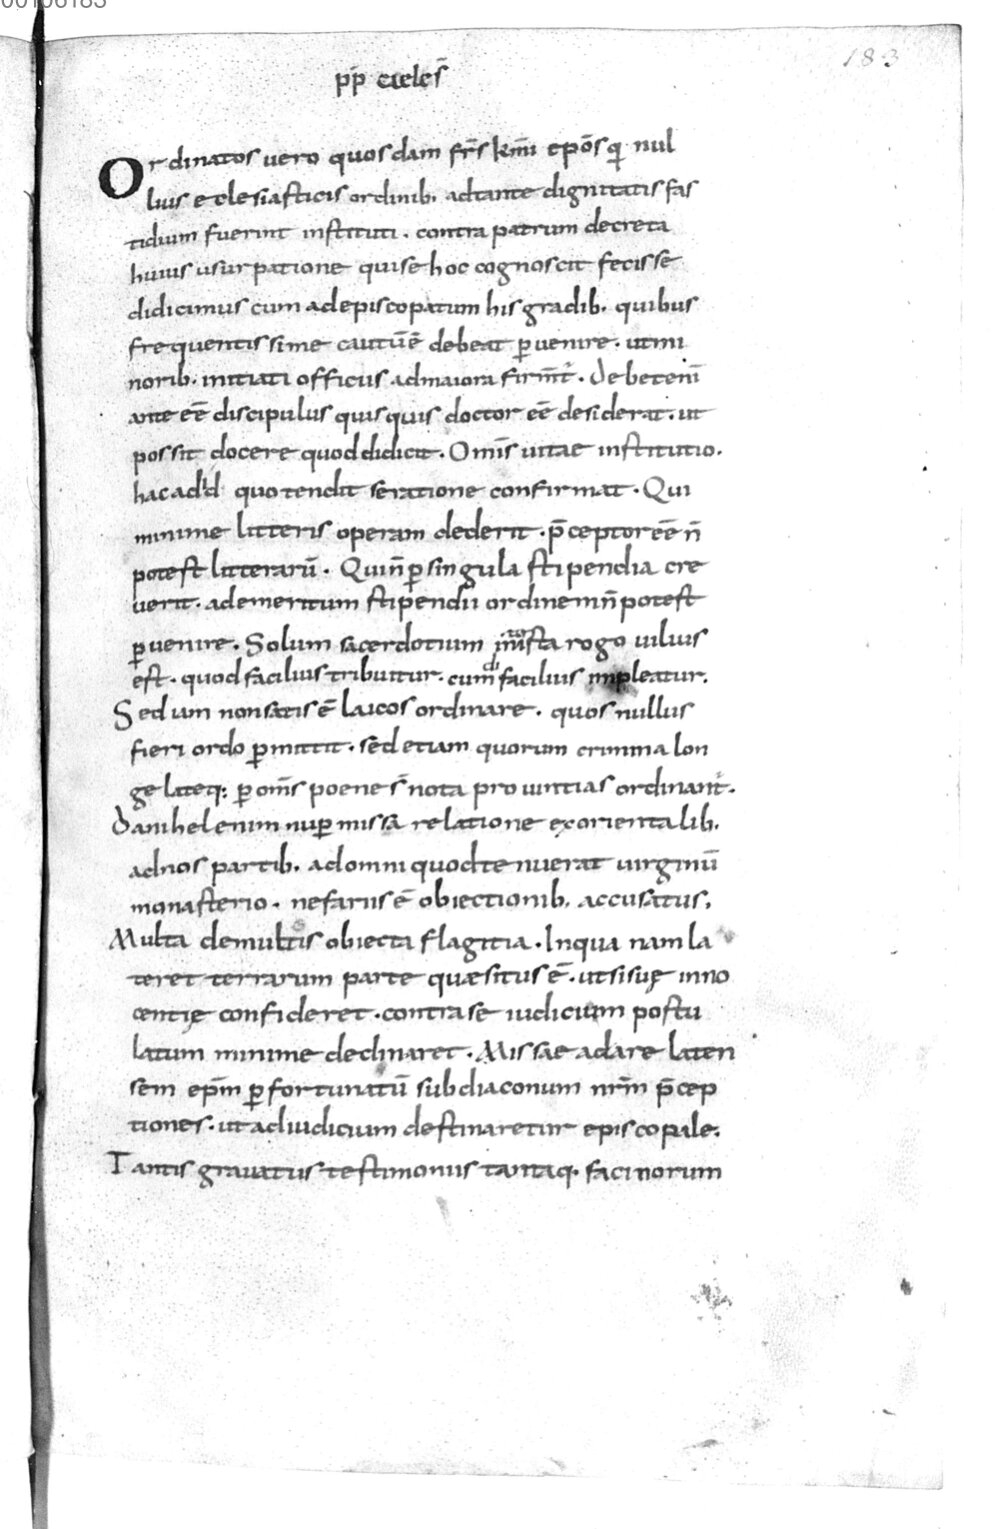 00106183
183
pp̄ cieles̄
Ordinatos uero quosdam frs̄ km̄i epōs qui nul
lius eclesiasticis ordinib. adtante dignitatis fas
tidium fuerint instituti. contra patrum decreta
huius usurpatione qui se hoc cognoscit fecisse
didicimus cum ad episcopatum his gradib. quibus
frequentissime cautū ē debeat ꝑuenire. ut mi
norib. initiati officiis ad maiora firment̄. Debet enī
ante eē discipulus quisquis doctor eē desiderat. ut
possit docere quod didicit. Omīs uitae institutio.
hac ad id quo tendit se ratione confirmat. Qui
minime litteris operam dederit. p̄ceptor eē n̄
potest litterarū. Qui n̄ ꝑ singula stipendia cre
uerit. ad emeritum stipendii ordinem n̄ potest
ꝑuenire. Solum sacerdotium int̄ ista rogo uilius
est. quod facilius tribuitur. cum̄ difficilius impleatur.
Sed iam non satis ē laicos ordinare. quos nullus
fieri ordo ꝑmittit. sed etiam quorum crimina lon
ge lateq: ꝑ omīs poene s̄ nota prouintias ordinant̄.
Danihel enim nuꝑ missa relatione ex orientalib.
ad nos partib. ad omni quod tenuerat uirginū
monasterio. nefariis ē obiectionib. accusatus,
Multa de multis obiecta flagitia. In qua nam la
teret terrarum parte quaesitus ē. ut si suę inno
centię confideret. contra se iudicium postu
latum minime declinaret. Missae ad arelaten
sem ep̄m ꝑ fortunatū subdiaconum nr̄m p̄cep
tiones. ut ad iudicium destinaretur episcopale.
Tantis grauatus testimoniis tantaq. facinorum